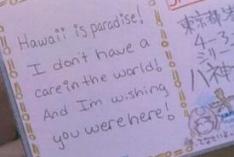 Hawaii is paradise!
I don't have a
care in the world!
And I'm wishing
you were here!
東京都
4-3
八神